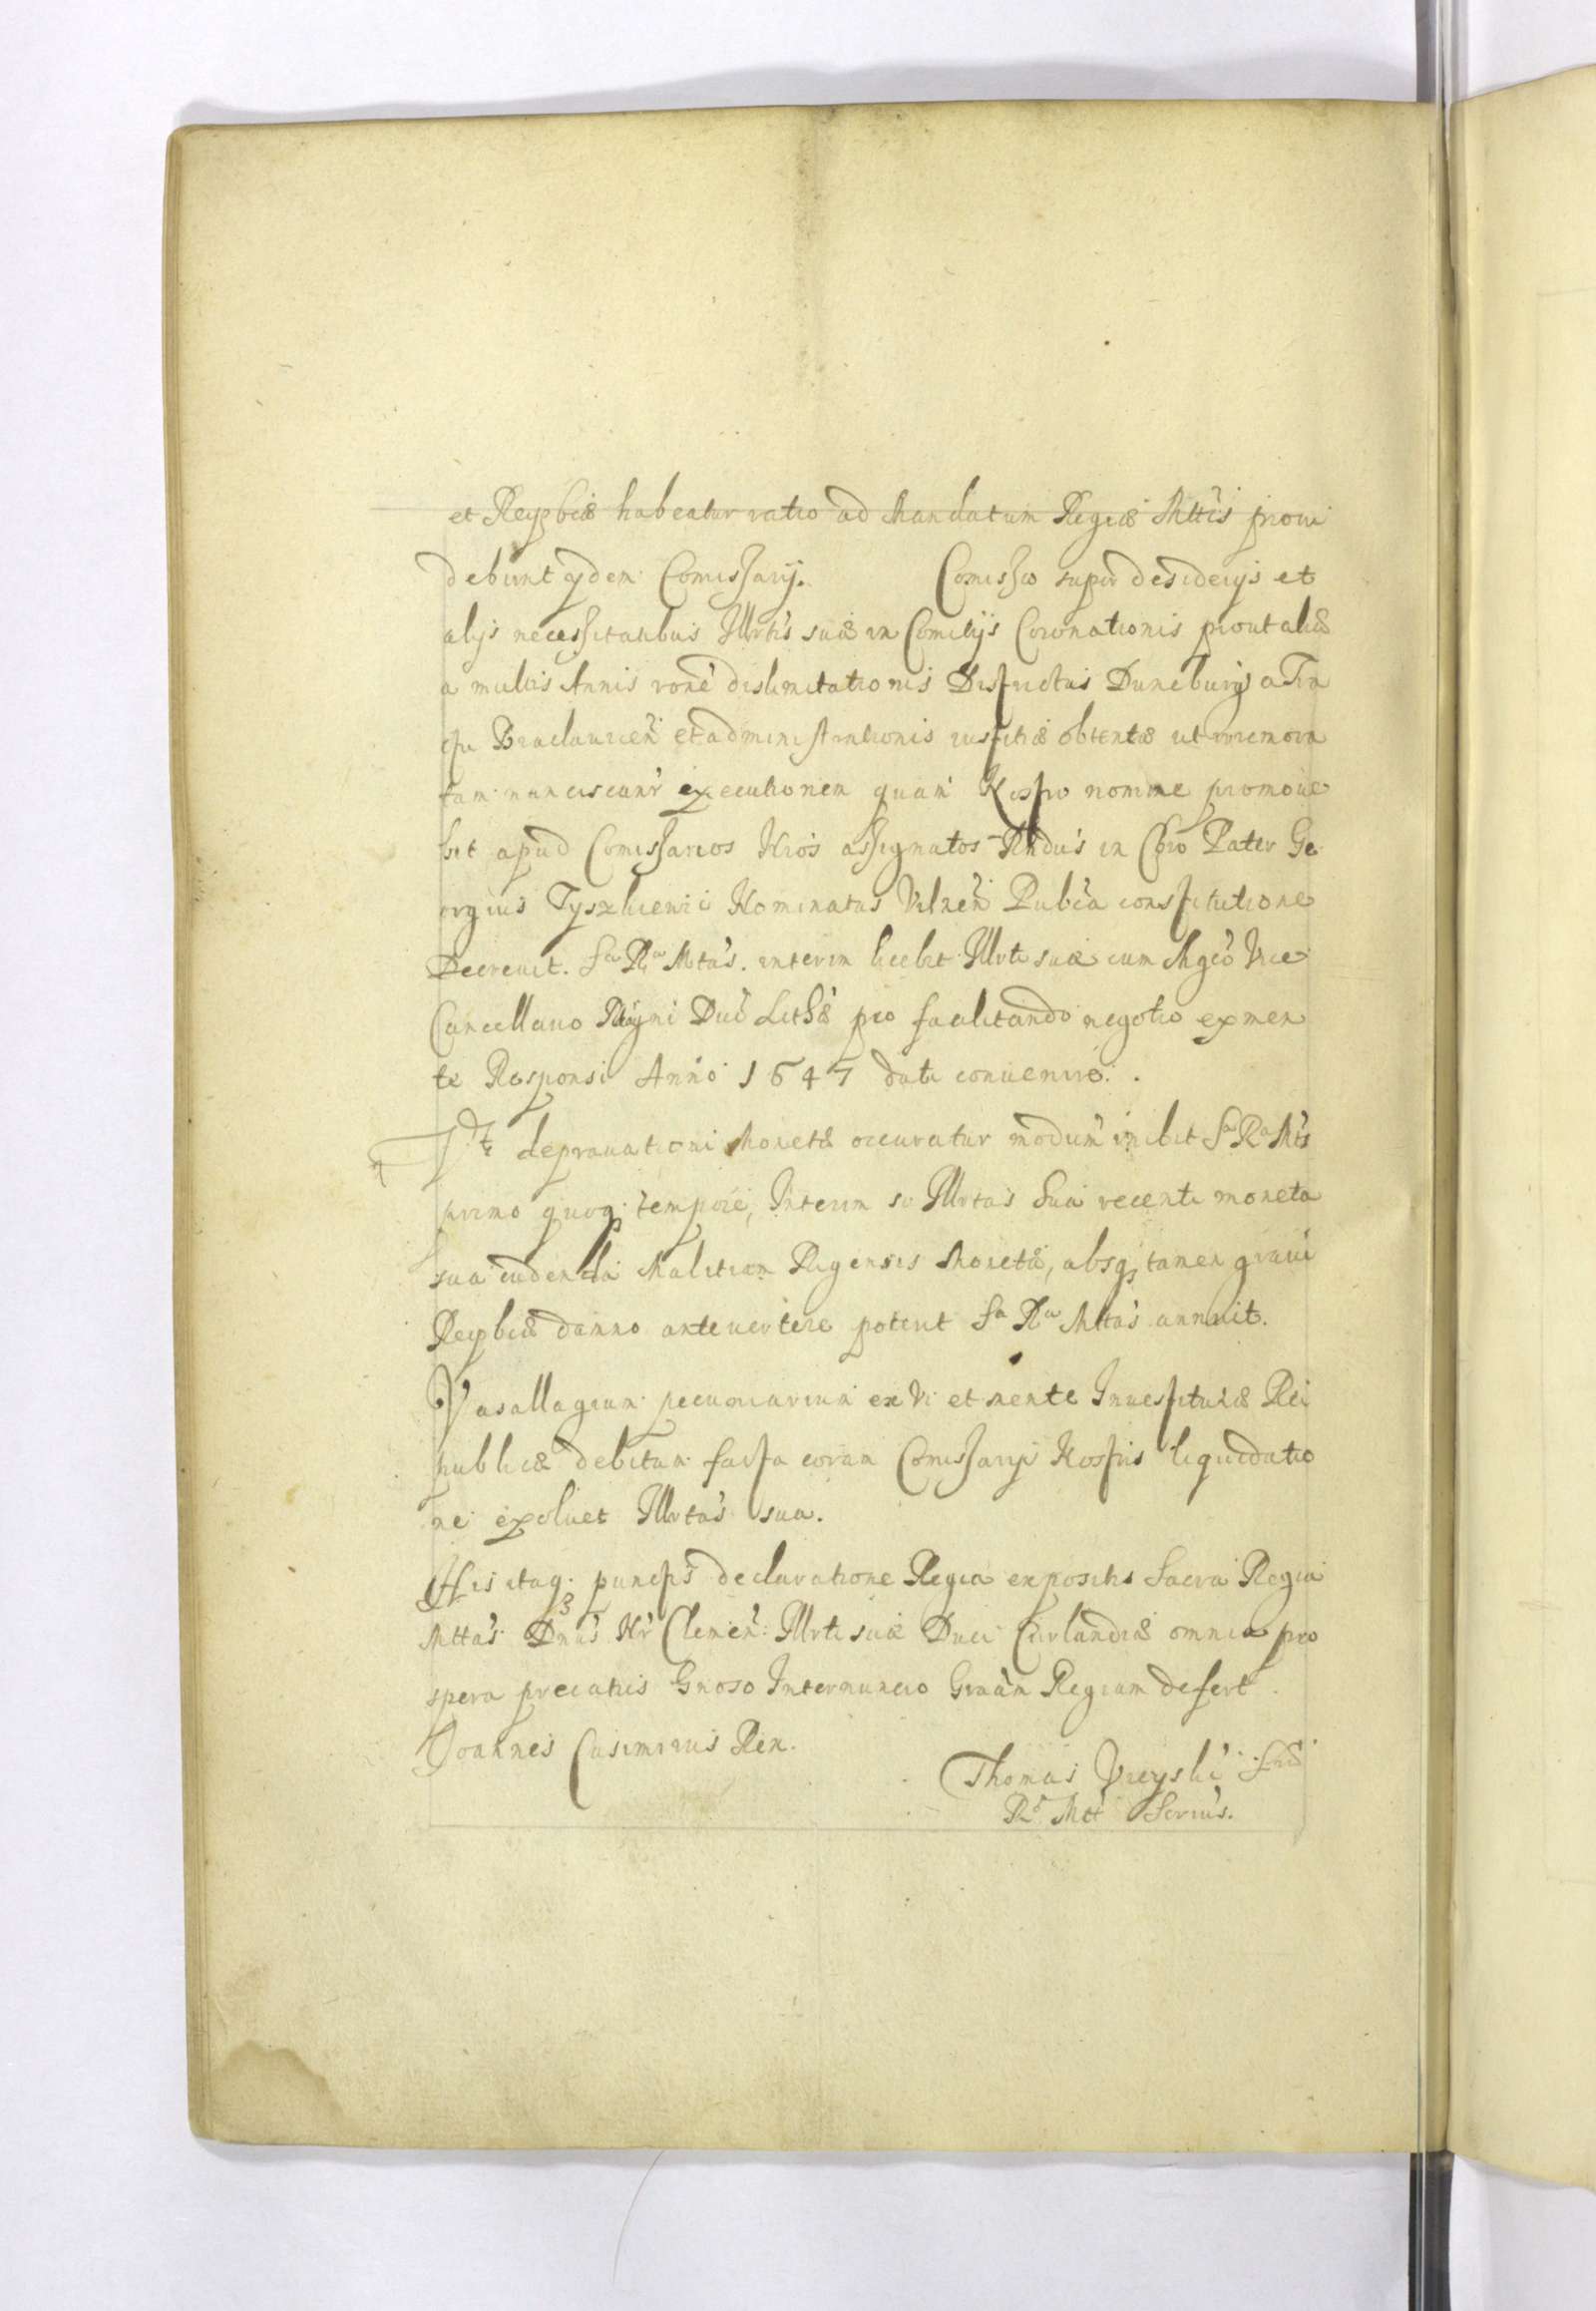 et Reypbcæ habeatur ratio ad Mandatum Regiæ Mttis proui
debunt ijdem Comissarij. Comissio super desiderijs et
alijs necessitatibus Illrtis suæ in Comitijs Coronationis prout aliæ
a multis Annis rone dislimitationis Districtus Duneburg a Tra
ctu Braclauien et administrationis iustitiæ obtentæ ut
tam nanciscantr executionem quam Nostro nomine promoue
bit apud Comissarios Nros assignatos Rndus in Chro Pater Ge
orgius Tyszkiewic Nominatus Vilnen Publca constitutione
Decreuit. Sa Ra Mtas. interim licebit Illrti suæ cum Mgco Vice
Cancellario Magni Duc Lithæ pro facilitando negotio ex men
te Responsi Anno 1647 dati conuenire.
Vt deprauationi Monetæ occuratur modum inibit Sa Ra Mts
primo quoq tempore, Interim si Illrtas Sua recenti moneta
sua cudenda Malitiam Rigensis Monetæ, absq tamen graui
Reypbcæ damno anteuertere poterit Sa Ra Mttas annuit.
Vasallagium pecuniarium ex Vi et mente Inuestituræ Rei
publicæ debitum facta coram Comissarijs Nostris liquidatio
ne exoluet Illrtas sua.
His itaq punctis declaratione Regia expositis Sacra Regia
Mttas Dnus Nr Clemen: Illrti suæ Duci Curlandiæ omnia pro
spera precatus Gnoso Internuncio Graam Regiam defert.
Joannes Casimirus Rex.
Thomas Vieyski Sræ
Ræ Mtt Secrius.